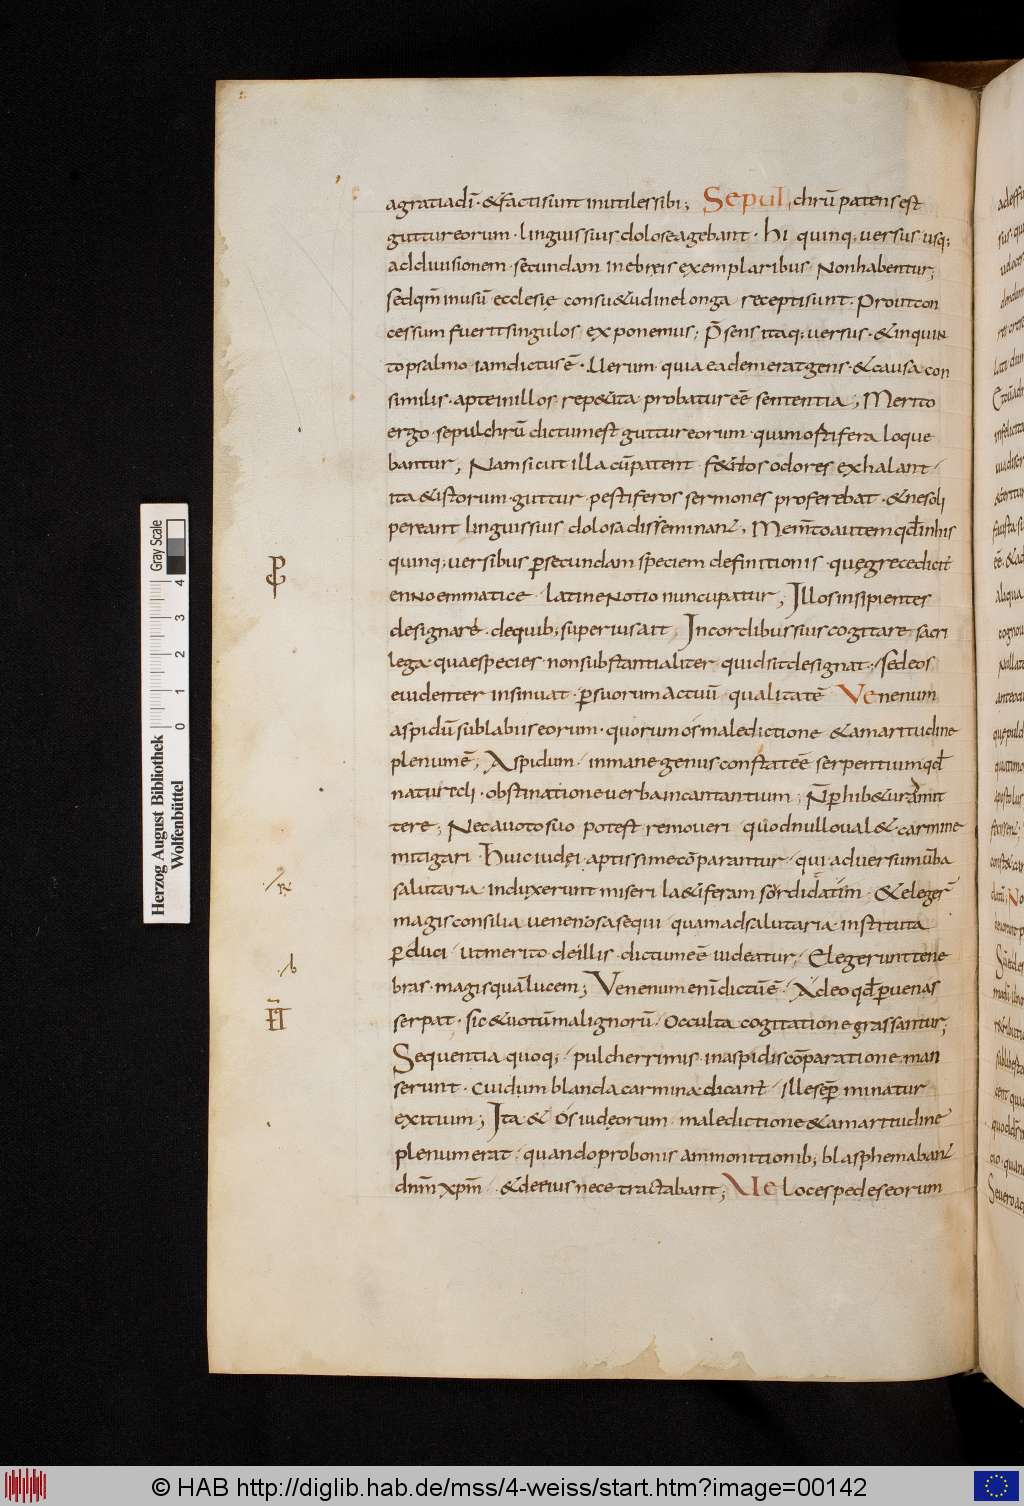 agratiadī · & facti sunt inutiles sibi; Sepulchrū patens est
guttur eorum · linguis suis dolose agebant · hi quinq; uersus usq;
ad diuisionem · secundam in ebreis exemplaribus · Non habentur;
sed qm̄ in usū ecclesię consu&udine longa recepti sunt · Prout con
cessum fuerit singulos exponemus; P̄sens itaq; uersus · & in quin
to psalmo iam dictus ē · Uerum quia eadem erat gens · & causa con
similis · apte in illos rep&ita probatur eē sententia; Merito
ergo · sepulchrū dictum est guttur eorum · qui mostifera loque
bantur; Nam sicut illa cū patent · f&idos odores exhalant
ita & istorum guttur · pestiferos sermones proferebat · & ne soli
pereant linguis suis dolosa disseminant; Mem̄to autem qd̄ in his
quinq; uersibus p secundam speciem definitionis · quę grece dicit̄
ennoemmatice · latine notio nuncupatur; Illos insipientes
designare · de quib; superius ait; In cordibus suis cogitare sacri
lega quae species · non substantialiter quid sit designat; sed eos
euidenter insinuat · p suorum actuū qualitatē Venenum
aspidū sub labiis eorum · quorum os maledictione & amaritudine
plenum ē; Aspidum inmane genus constat eē serpentium qd̄
naturę di · obstinatione uerba incantantium; N̄ phib&ur amit
tere; Nec a uoto suo potest remoueri quod nullo ual& carmine
mitigari · Huic iudęi aptissime cōparantur qui aduersum ūba
salutaria induxerunt miseri la&iferam sordidatim · & eleger̄
magis consilia uenenosa sequi quam ad salutaria instituta
pduci ut merito de illis dictum eē uideatur; Elegerunt tene
bras · magis quā lucem; Venenum enī dictū ē Adeo qd̄ p uenas
serpat · sic & uotū malignorū Occulta cogitatione grassantur;
Sequentia quoq; pulcherrimis in aspidis cōparatione man
serunt · cui dum blanda carmina dicant̄ ille semp̄ minatur
exitium; Ita & os iudęorum maledictione & amaritudine
plenum erat quando pro bonis ammonitionib; blasphemabant
dnm̄ xpm̄ & de eius nece tractabant; Ueloces pedes eorum
Gray Scale
4 3 2 1 0
Herzog August Bibliothek
Wolfenbüttel
© HAB http://diglib.hab.de/mss/4-weiss/start.htm?image=00142